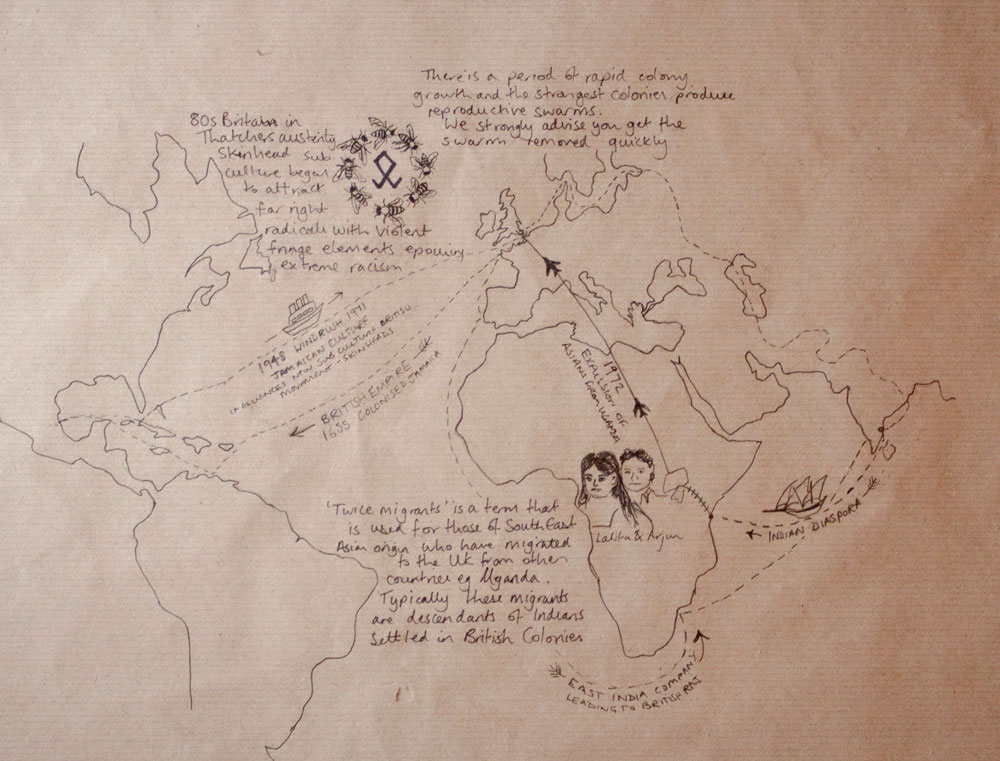 There is a period of rapid colony
growth and the strongest colonies produce
reproductive swarms.
We strongly advise you get the
swarm removed quickly
80s Britain in
Thatchers austerity
Skinhead sub
culture began
to attract
far right
radicals with violent
fringe elements epouring
extreme racism
1948 WINDRUSH 1971
JAMAICAN CULTURE
INFLUENCES NEW SUB CULTURE BRITISH
MOVEMENT - SKINHEADS
BRITISH EMPIRE
1655 COLONISED JAMAICA
1972
EXPULSION OF
ASIANS FROM UGANDA
'Twice migrants' is a term that
is used for those of South East
Asian origin who have migrated
to the UK from other
countries eg Uganda.
Typically these migrants
are descendants of Indians
Settled in British Colonies
Lalita & Arjun
INDIAN DIASPORA
EAST INDIA COMPANY
LEADING TO BRITISH RAJ